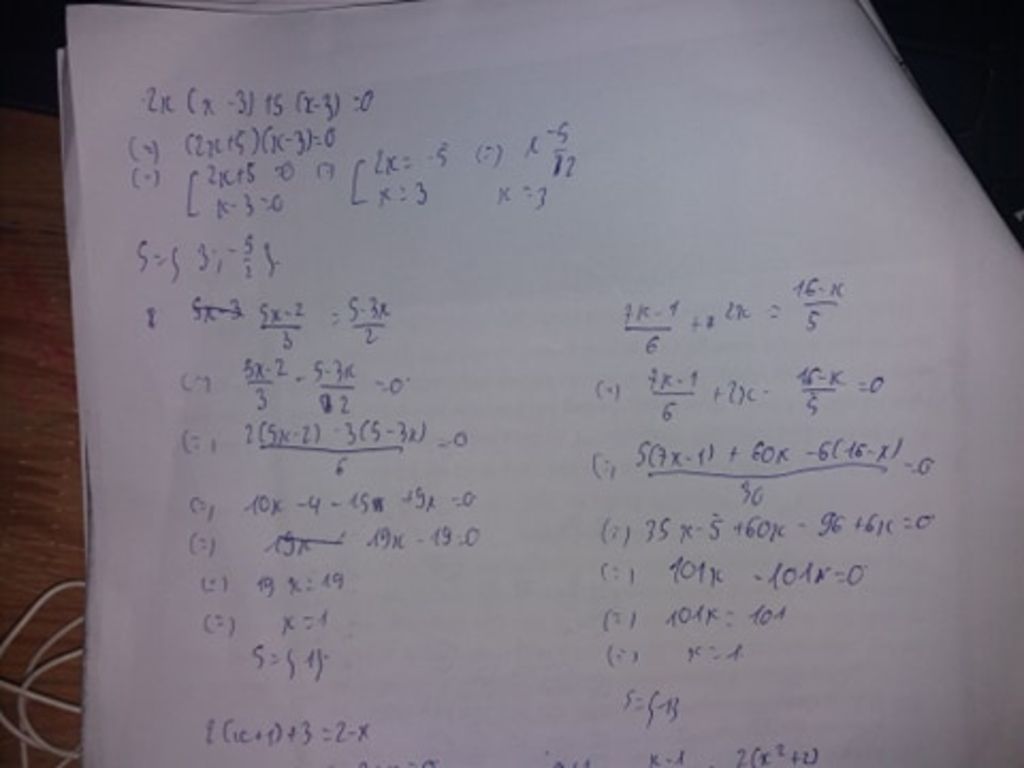 2x (x - 3) + 5 (x-3) = 0
(=) (2x+5)(x-3)=0
(=) [ 2x+5 = 0 (=) [ 2x = -5 (=) x = -5/2
x-3=0 x = 3 x = 3
S={ 3 ; -5/2 }
5x-2/3 = 5-3x/2
(=) 5x-2/3 - 5-3x/2 = 0
(=) 2(5x-2) - 3(5-3x)/6 = 0
(=) 10x - 4 - 15 + 9x = 0
(=) 19x - 19 = 0
(=) 19x = 19
(=) x = 1
S={ 1 }
7x-1/6 + 2x = 16-x/5
(=) 7x-1/6 + 2x - 16-x/5 = 0
(=) 5(7x-1) + 60x - 6(16-x)/30 = 0
(=) 35x - 5 + 60x - 96 + 6x = 0
(=) 101x - 101x = 0
(=) 101x = 101
(=) x = 1
2(x+1)+3 = 2-x
x-1 2(x²+2)